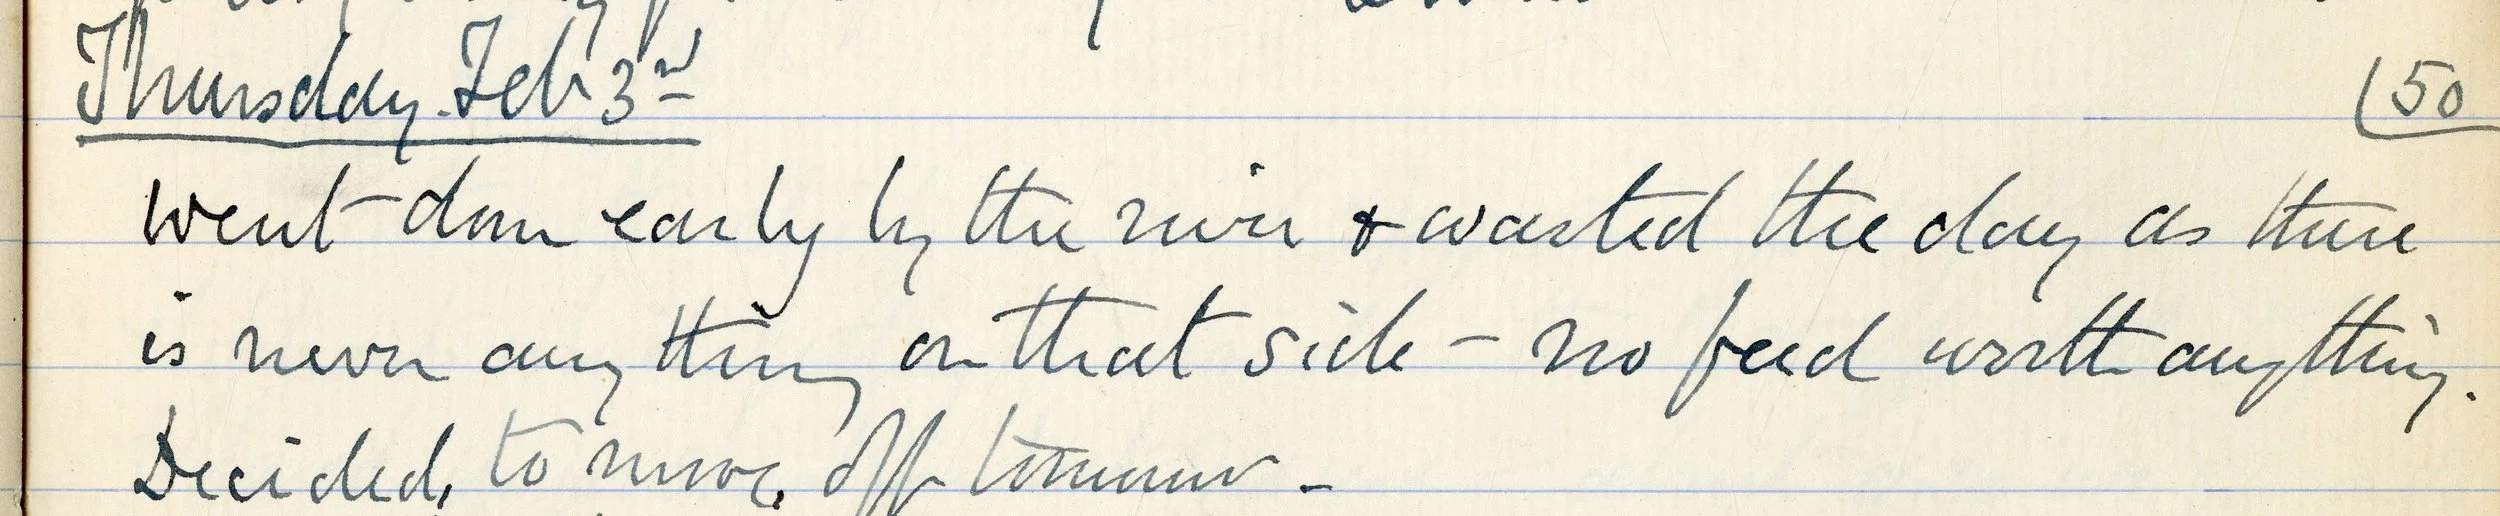 Thursday. Feb 3rd
50
went down early by the river & wasted the day as there
is never anything on that side - no feed worth anything.
Decided, to move, off tomorrow -